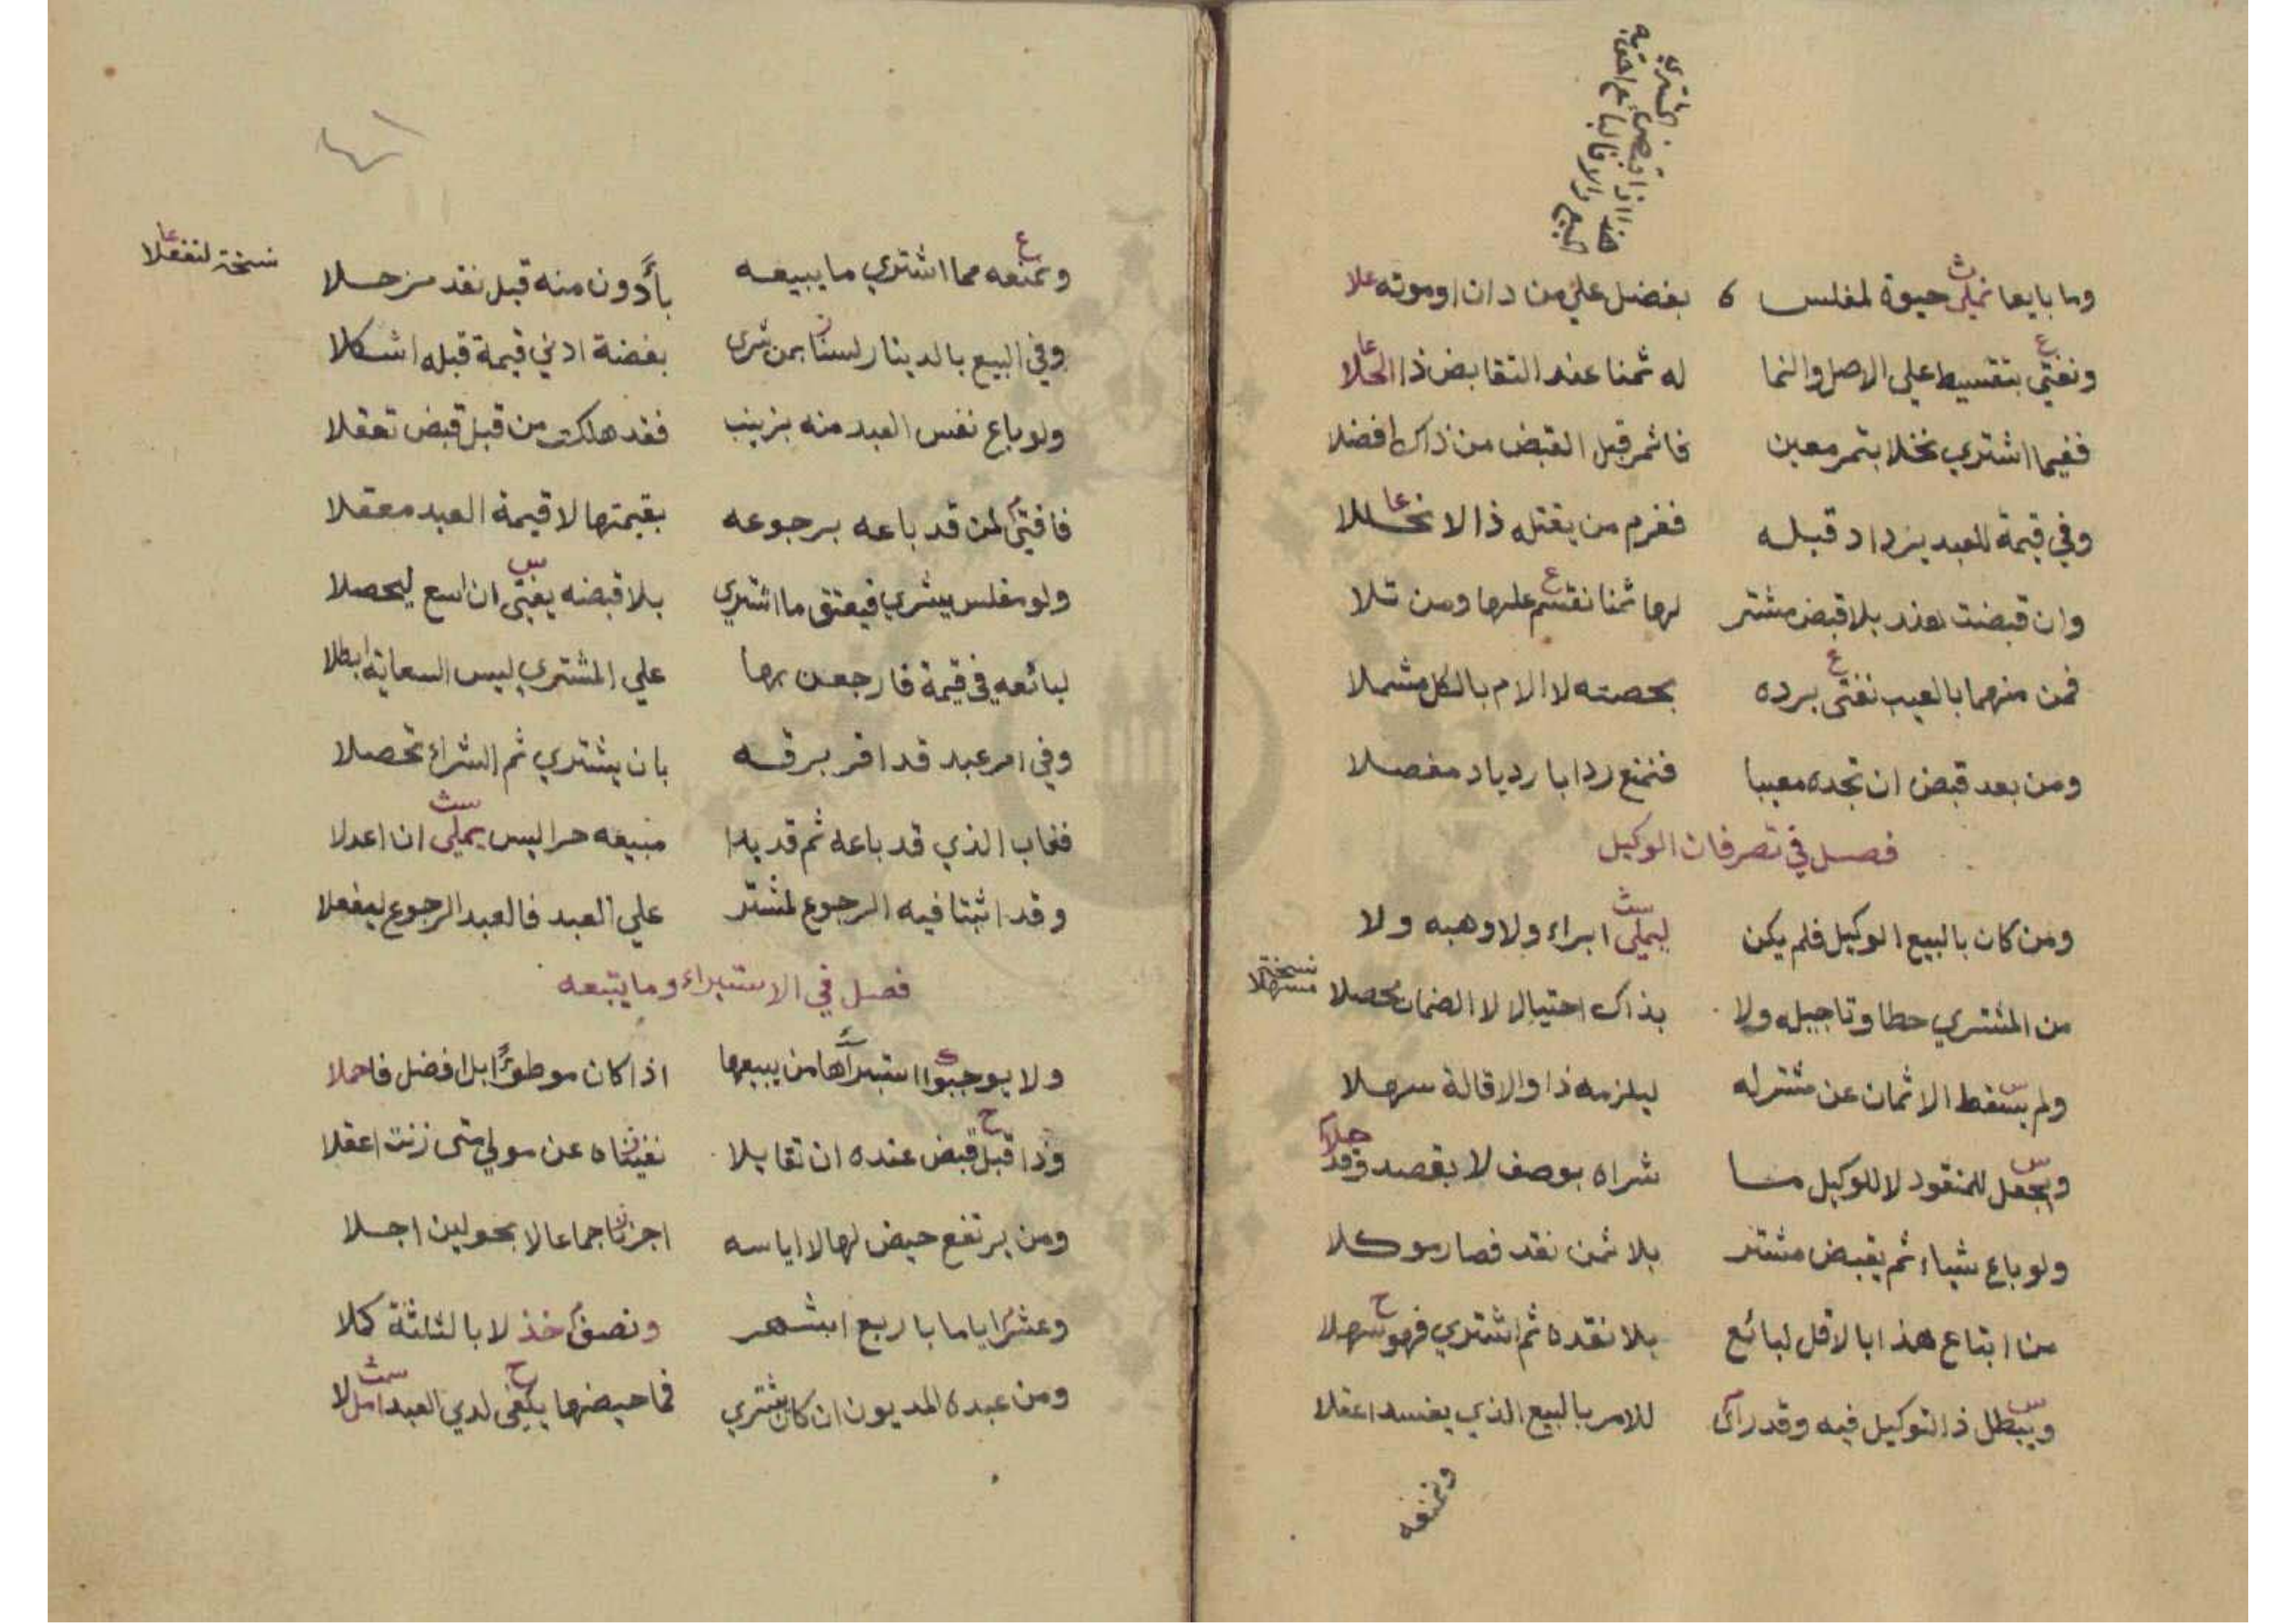 المشتري
هذا اذا قبض
والا فالبائع احق به
البيع
وما بايعا نملي حيوة لمفلس بفضل علي من دان او موته علا
ونفتي بتقسيط علي الاصل والنما له ثمنا عند التقابض ذا الحلا
ففيما اشتري نخلا بتمر معين فاثمر قبل القبض من ذاك افضلا
وفي قيمة للعبد يزداد قبله فغرم من يقتله ذا لا نحللا
وان قبضت بلا قبض مشتر لها ثمنا نقسم عليها ومن تلا
فمن منهما بالعيب نفتي برده بحصته لا الام بالكل مشملا
ومن بعد قبض ان تجده معيبا فنمنع ردا بازدياد مفصلا
فصل في تصرفات الوكيل
ومن كان بالبيع الوكيل فلم يكن ليملي ابراء ولا وهبه ولا
من المشتري حطا وتاجيله ولا بذاك احتيال لا الضمان محصلا
نسخة مسهلا
ولم يسقط الاثمان عن مشتر له ليلزمه ذا والاقالة سهلا
ويجعل للمنقود لا للوكيل ما شراه بوصف لا بقصد وقد
ولو باع شياء ثم يقبض مشتر بلا ثمن نقد فصار موكلا
من ابتاع هذا بالاقل لبائع بلا نقده ثم اشتري فهو سهلا
ويبطل ذا التوكيل فيه وقد رأى للامر بالبيع الذي يفسد اعقلا
ونمنعه
ونمنعه مما اشتري ما يبيعه بأدون منه قبل نقد من حلا
نسخة لنفعلا
وفي البيع بالدينار لسنا بمن شرى بفضة ادني قيمة قبله اشكلا
ولو باع نفس العبد منه بزينب فقد هلكت من قبل قبض تعقلا
فافتى لمن قد باعه برجوعه بقيمتها لا قيمة العبد معقلا
ولو مفلس يشري فيعتق ما اشتري بلا قبضه يفتى ان اسع ليحصلا
لبائعه في قيمة فارجعن بها علي المشتري ليس السعاية ابطلا
وفي امر عبد قد اقر برقه بان يشتري ثم الشراء تحصلا
فغاب الذي قد باعه ثم قد بدا مبيعه حرا ليس يملى ان اعدلا
وقد اثبتا فيه الرجوع لمشتر علي العبد فالعبد الرجوع ليفعلا
فصل في الاستبراء وما يتبعه
ولا يوجبوا استبرآها من يبيعها اذا كان موطوءا بل افضل فاحملا
وذا قبل قبض عنده ان تقايلا نفيناه عن مولي متى زنت اعقلا
ومن يرتفع حيض لها لا اياسه اجزنا جماعا لا بحولين اجلا
وعشرا اياما باربع اشهر ونصف خذ لا بالثلثة كملا
ومن عبده المديون ان كان يشتري فما حيضها يكفي لدي العبد امل لا